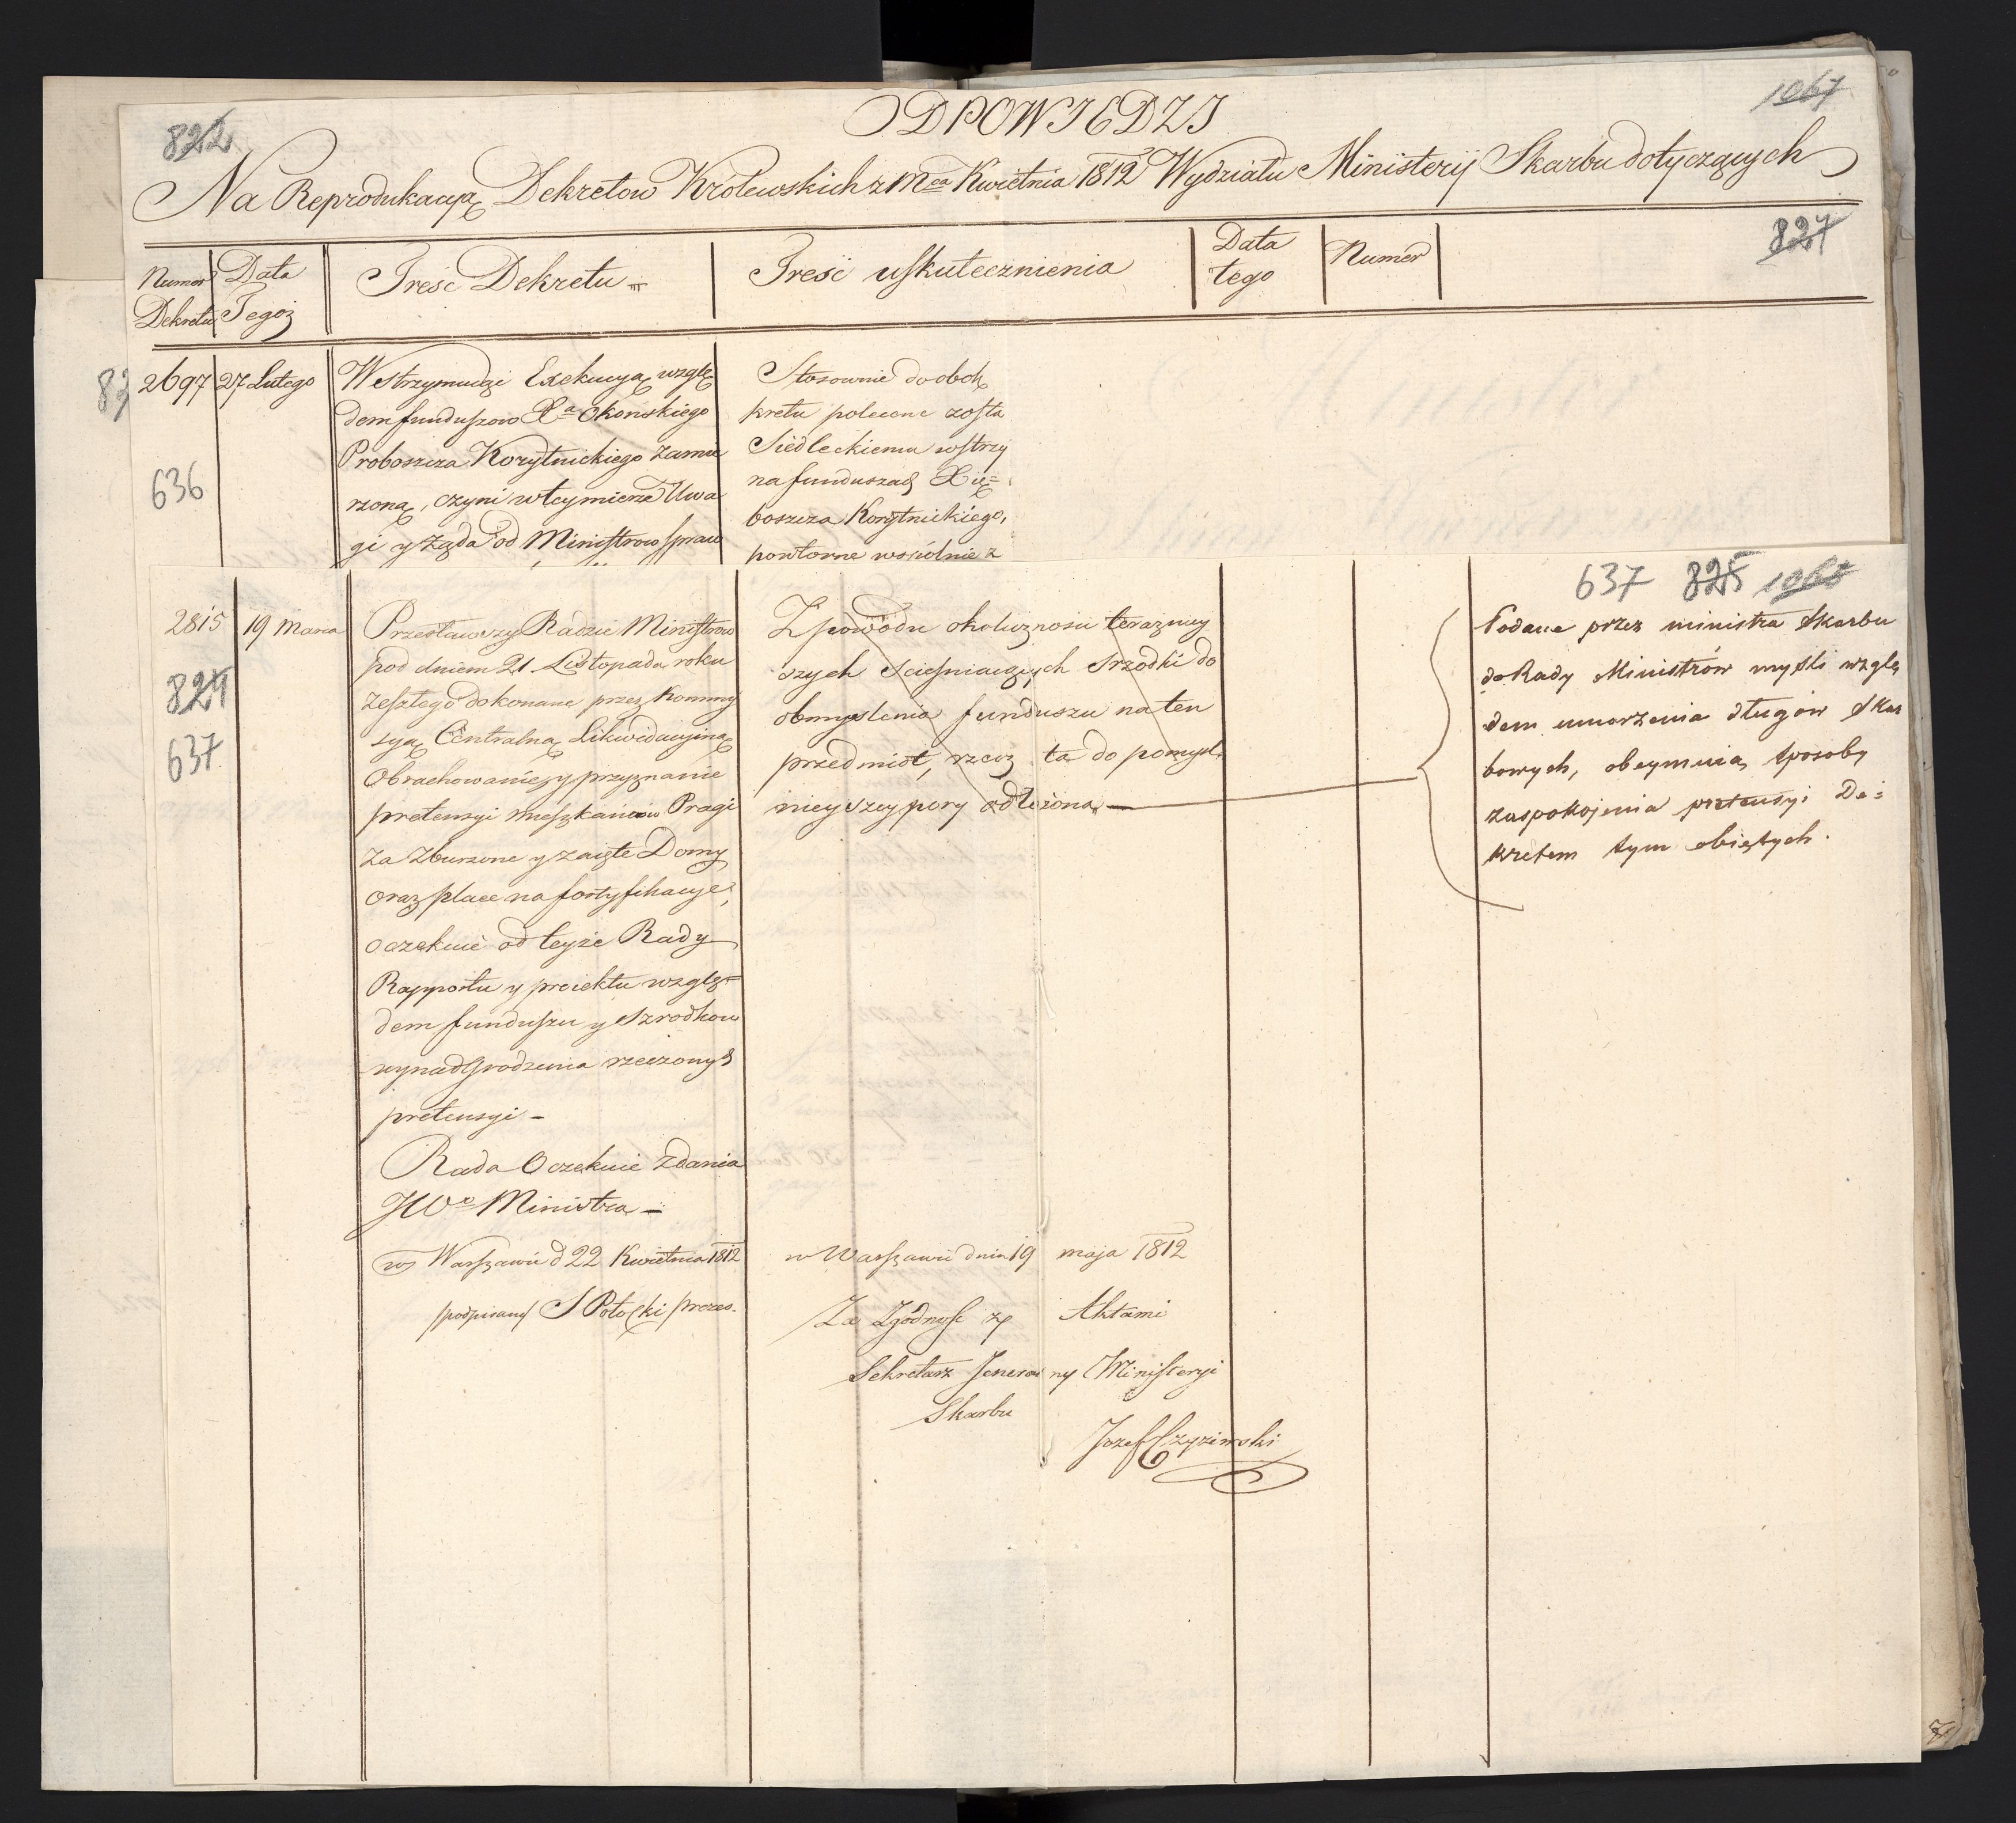 ODPOWIEDZI
1067
822
Na Reprodukacyą Dekretow Królewskich z Mca Kwietnia 1812 Wydziału Ministerij Skarbu dotyczących
827
Numer Dekretu
Data Tegoż
Treść Dekretu
Treść uskutecznienia
Data tego
Numer
2697
27 Lutego
636
Wstrzymuiąc Exekucyą wzglę
dem funduszow Xa Okonskiego
Proboszcza Korytnickiego zamie
rzoną, czyni w tey mierze Uwa
gi y żąda od Ministrow spraw
Stosownie do obok
kretu polecone zosta
Siedleckiemu wstrzy
na funduszach Xię=
boszcza Korytnickiego,
powtorne wspólnie z
637 825 1068
2815
19 Marca
824
637
Przesławszy Radzie Ministrow
pod dniem 21 Listopada roku
zeszłego dokonane przez Kommis
syą Centralną Likwidacyiną
Obrachowanie y przyznanie
pretensyi mieszkańców Pragi
za zburzone y zaięte Domy
oraz place na fortyfikacye,
oczekuie od teyże Rady
Rapportu y proiektu wzglę=
dem funduszu y szrodkow
wynadgrodzenia rzeczonych
pretensyi –
Rada Oczekuie zdania
JWo Ministra –
w Warszawie d 22 Kwietnia 1812
podpisany S Potocki prezes.
Z powodu okoliczności terazniey
szych scieśniaiących srzodki do
obmyslenia funduszu na ten
przedmiot, rzecz ta do pomyśl
nieyszey pory odłożona –
w Warszawie dnia 19 maja 1812
Za Zgodność z Aktami
Sekretarz Jeneralny Ministeryi
Skarbu
Jozef
Podane przez ministra Skarbu
do Rady Ministrów myśli wzglę
dem umorzenia długów Skar
bowych, obeymuią sposoby
zaspokojenia pretensyi De=
kretem tym obiętych.